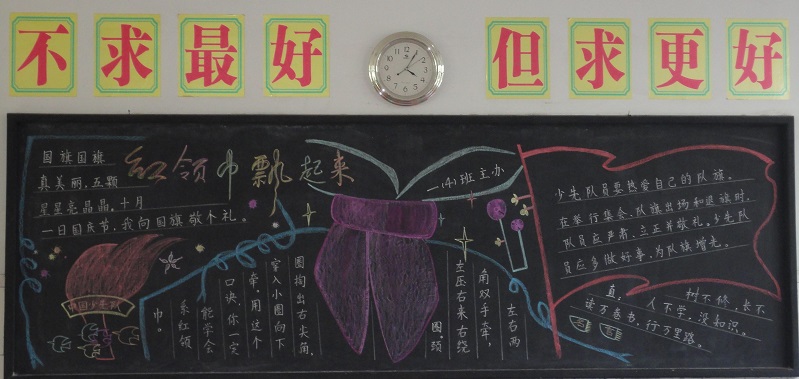 不求最好
但求更好
红领巾飘起来
一（4）班主办
国旗国旗
真美丽，五颗
星星亮晶晶。十月
一日国庆节，我向国旗敬个礼。
中国少年队
左右两
角双手牵，
左压右来右绕
圈。颈
圈掏出右尖角，
穿入小圈向下
牵，用这个
口诀，你一定
能学会
系红领
巾。
少先队员要热爱自己的队旗。
在举行集会、队旗出场和退旗时，
队员应严肃、立正并敬礼。少先队
员应多做好事，为队旗增光。
树不修，长不
直，人不学，没知识。
读万卷书，行万里路。